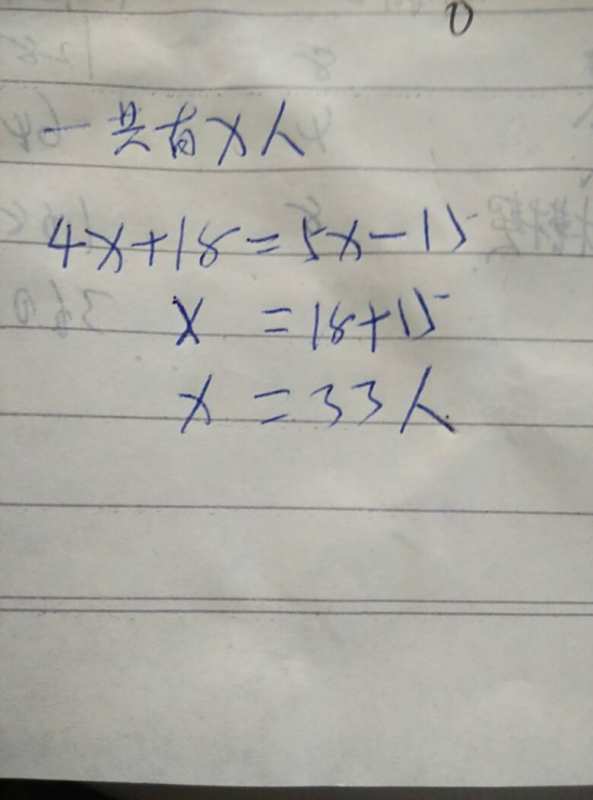 0
一共有x人
4x+18=5x-15
x =18+15
x =33人